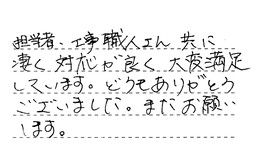 担当者、工事職人さん 共に
凄く 対応が良く 大変満足
しています。どうもありがとう
ございました。またお願い
します。